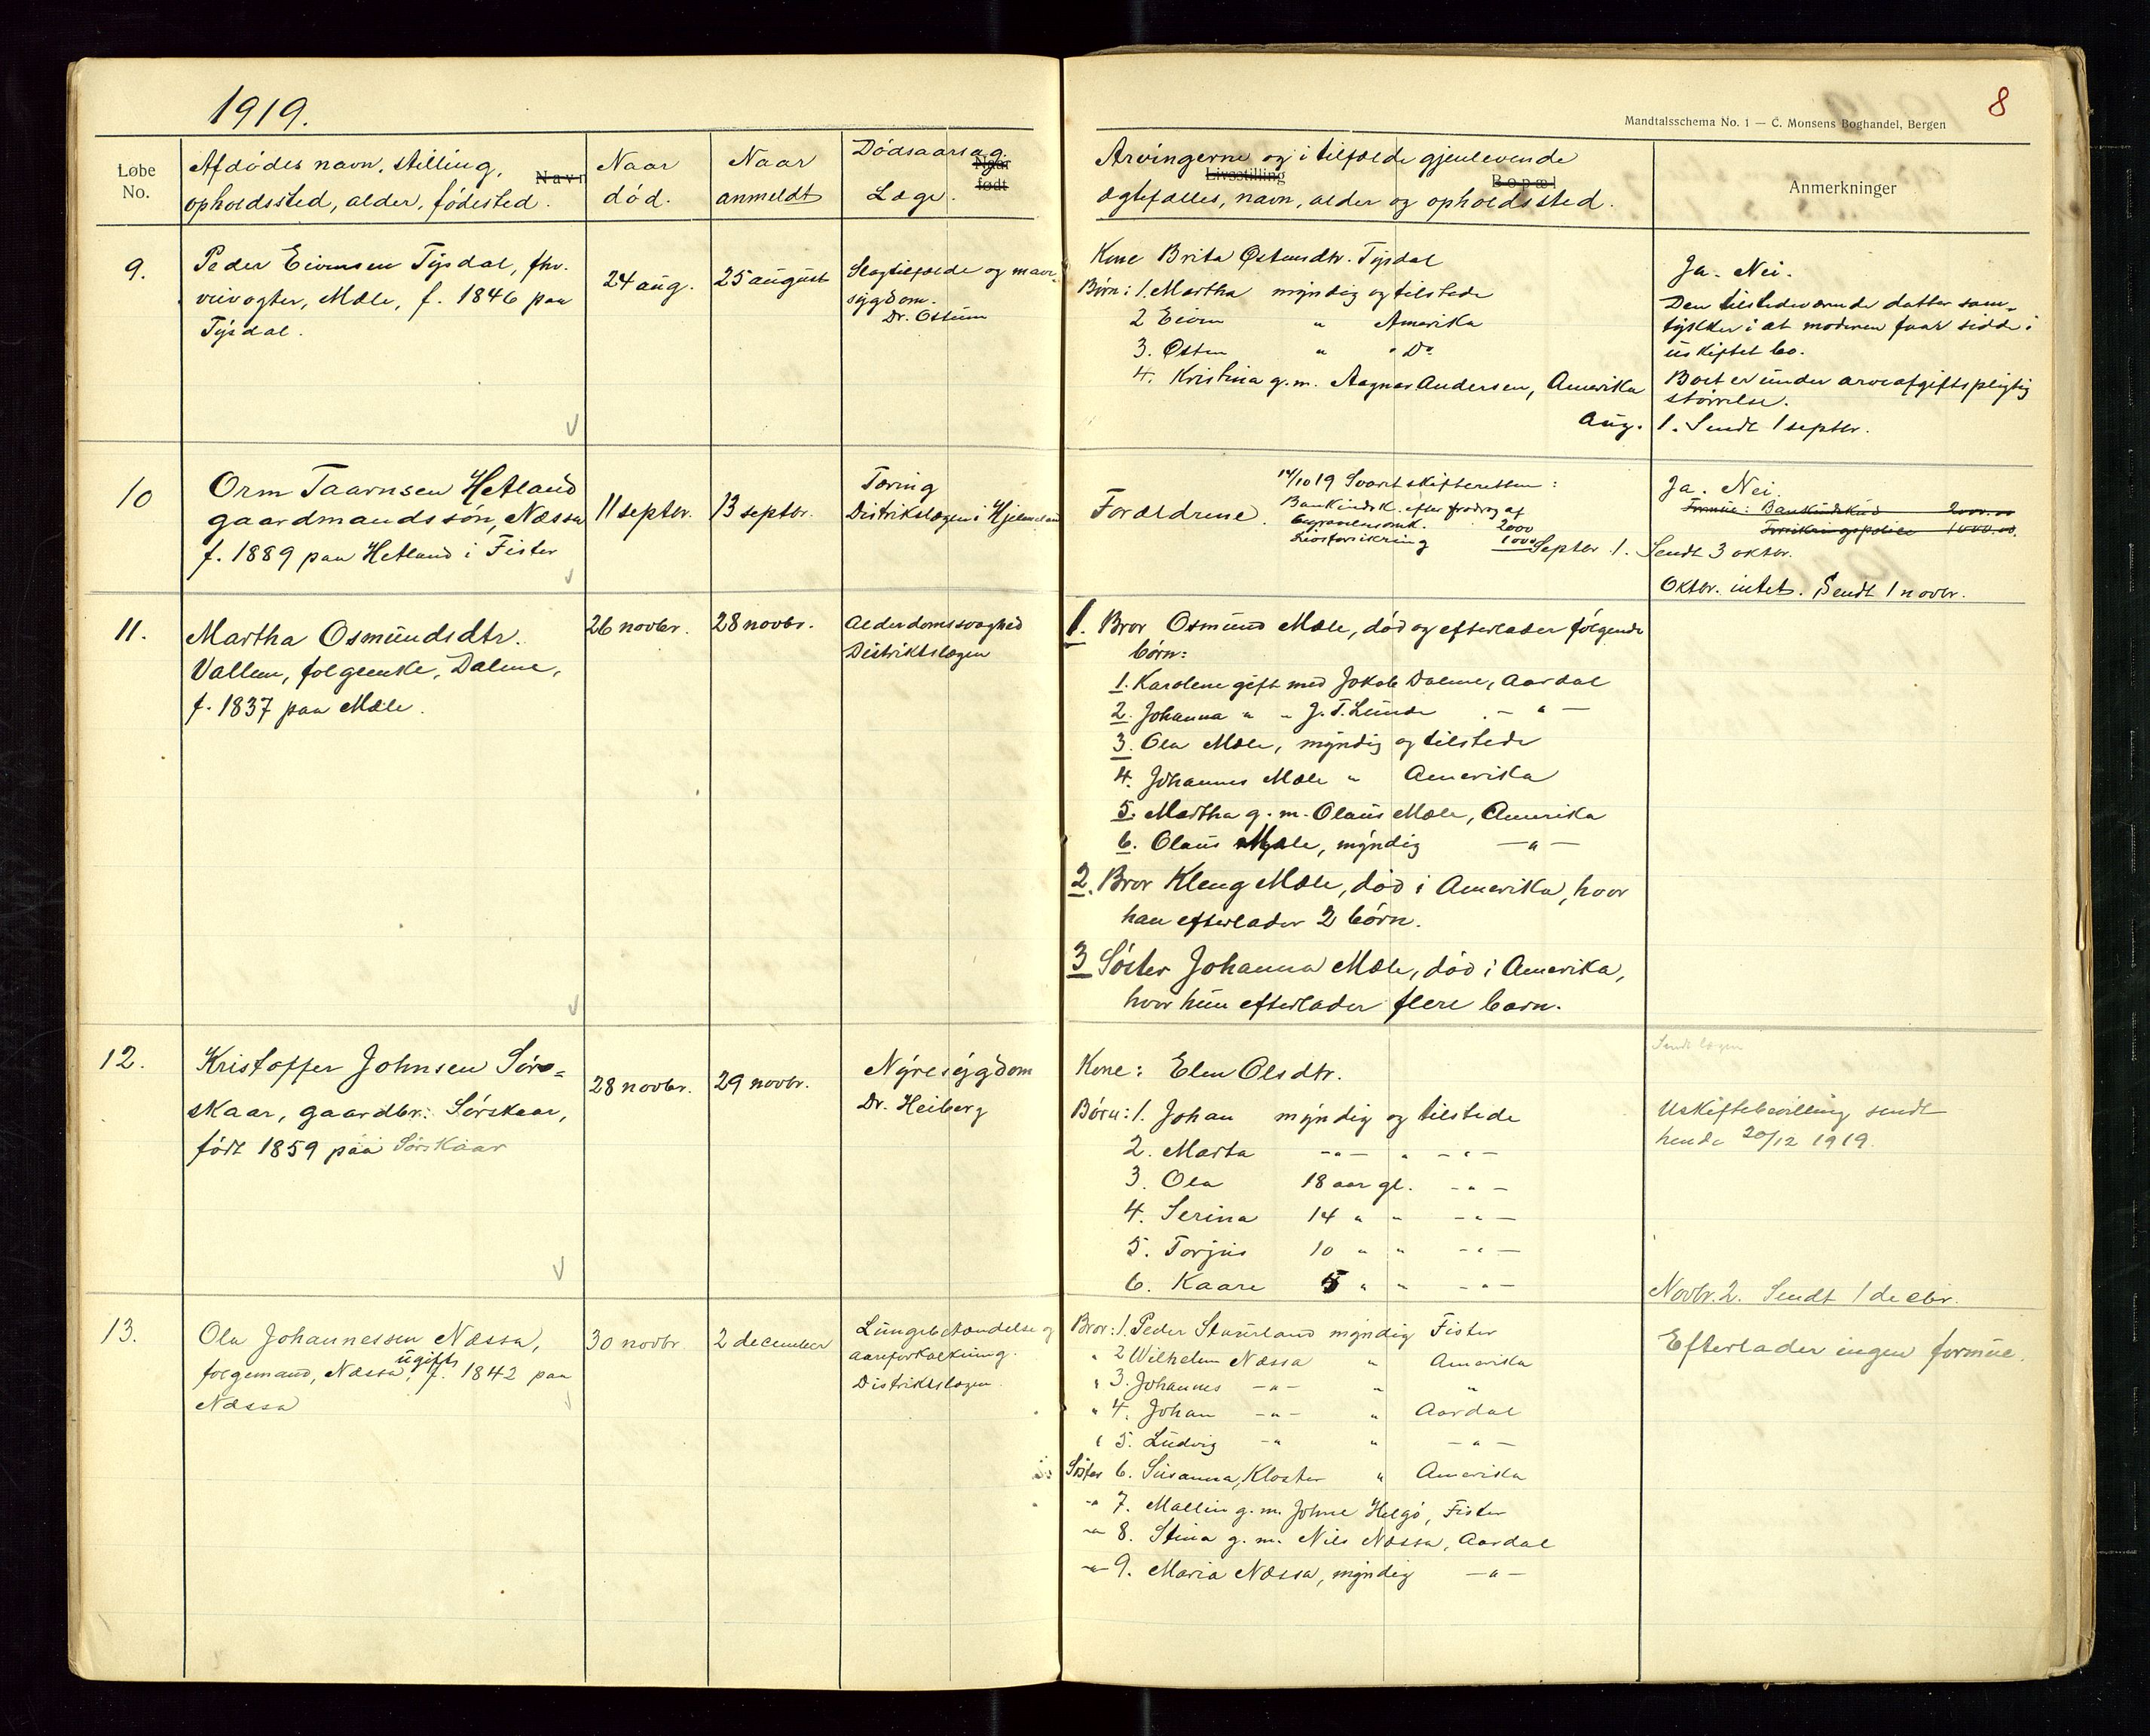 1919.
8
Mandtalsschema No. 1 — C. Monsens Boghandel, Bergen
Løbe No.
Afdødes navn, stilling,
opholdssted, alder, fødested.
Navn
Naar
død.
Naar
anmeldt
Dødsaarsag.
Læge.
Naar
født
Arvingerne og i tilfælde gjenlevende
Livsstilling
Bopæl
ægtefælles, navn, alder og opholdssted.
Anmerkninger
9.
Peder Eivensen Tysdal, fhv.
veivogter, Mæle, f. 1846 paa
Tysdal.
24 aug.
25 august
Slagtilfælde og mave-
sygdom.
Dr. Ostum
Kone Brita Østensdtr. Tysdal
Børn: 1. Martha myndig og tilstede
2 Eiven " Amerika
3. Østen " " Do
4. Kristina g.m. Aagnar Andersen, Amerika
Aug.
Ja. Nei.
Den tilstedeværende datter sam-
tykker i at moderen faar sidde i
uskiftet bo.
Boet er under arveafgiftspligtig
størrelse.
1. Sendt 1 septbr.
10
Orm Taarnsen Hetland
gaardmandssøn, Næssa
f. 1889 paa Hetland i Fister
11 septbr.
13 septbr.
Tæring
Distrikslægen i Hjelmeland
Forældrene.
14/10 19 Svart skifteretten:
Bankindsk. efter fradrag af
begravelsesomk. 2000
Livsforsikring 1000
Septbr. 1.
Ja. Nei.
Formue: Bankindskud 2000.00
Forsikringspolice 1000.00.
Sendt 3 oktbr.
Oktbr. intet. Sendt 1 novbr.
11.
Martha Osmundsdtr.
Vallem, folgeenke, Dalene,
f. 1837 paa Mæle.
26 novbr.
28 novbr.
Alderdomssvaghed
Distriktslægen
1. Bror Osmund Mæle, død og efterlader følgende
børn:
1. Karolene gift med Jakob Dalene, Aardal
2. Johanna " " J. T. Lunde — " —
3. Ola Mæle, myndig og tilstede
4. Johannes Mæle " Amerika
5. Martha g. m. Olaus Mæle, Amerika
6. Olaus Mæle, myndig — " —
2. Bror Kleng Mæle, død i Amerika, hvor
han efterlader 2 børn.
3 Søster Johanna Mæle, død i Amerika,
hvor hun efterlader flere barn.
12.
Kristoffer Johnsen Sørs-
skaar, gaardbr. Sørskaar,
født 1859 paa Sørskaar
28 novbr.
29 novbr.
Nyresygdom
Dr. Heiberg
Kone: Elen Olsdtr.
Børn: 1. Johan myndig og tilstede
2. Marta — " — " — " —
3. Ola 18 aar gl. — " —
4. Serina 14 " " — " —
5. Torjus 10 " " — " —
6. Kaare 5 " " — " —
Sendt lægen
Uskiftebevilling sendt
hende 20/12 1919.
Novbr. 2. Sendt 1 decbr.
13.
Ola Johannessen Næssa,
ugift
folgemand, Næssa, f. 1842 paa
Næssa
30 novbr.
2 december
Lungebetændelse og
aareforkalkning.
Distriktslægen.
Bror: 1. Peder Staurland myndig Fister
" 2 Wilhelm Næssa " Amerika
" 3. Johannes — " — " "
" 4. Johan — " — " Aardal
" 5. Ludvig — " " — " —
Søster 6. Susanna, Kloster " Amerika
— " 7. Mallin g. m. Johne Helgø, Fister
— " 8. Stina g. m. Nils Næssa, Aardal
— " 9. Maria Næssa, myndig — " —
Efterlader ingen formue.